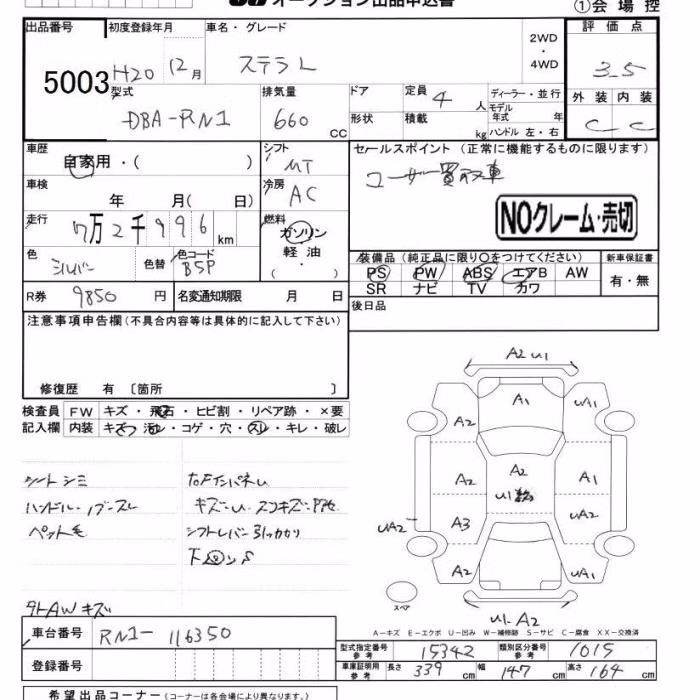 オークション出品申込書
①会場控
出品番号 初度登録年月 車名・グレード 2WD・4WD 評価点
5003 H20 12月 ステラL 3.5
型式 排気量 ドア 定員 4人 ディーラー・並行
モデル年式 年
DBA-RN1 660cc 形状 積載 kg ハンドル 左・右
外装 内装
C C
車歴 自家用・( ) シフト MT
セールスポイント(正常に機能するものに限ります)
ユーザー買取車
車検 年 月( 日) 冷房 AC
NOクレーム・売切
走行 7万2千996km 燃料 ガソリン 軽油・( )
色 シルバー 色替 色コード B5P
装備品(純正品に限り○をつけてください) 新車保証書
PS PW ABS エアB AW 有・無
SR ナビ TV カワ
R券 9850円 名変通知期限 月 日
後日品
注意事項申告欄(不具合内容等は具体的に記入して下さい)
修復歴 有 〔箇所 〕
検査員 FW キズ・飛石・ヒビ割・リペア跡・×要
記入欄 内装 キズ・汚レ・コゲ・穴・スレ・キレ・破レ
シートシミ
ハンドル・ノブスレ
ペット毛
キズ・U
シフトレバー引っかかり
外AWキズ
A2 U1
A1
A2 UA1
A2 A2 A1
U1
A3 UA2
UA2
A2 UA1
スペア
U1-A2
A-キズ E-エクボ U-凹み W-補修跡 S-サビ C-腐食 XX-交換済
車台番号 RN1-116350
登録番号
型式指定番号 参考 15342 類別区分番号 参考 1015
車庫証明用 参考 長さ 339cm 幅 147cm 高さ 164cm
希望出品コーナー(コーナーは各会場により異なります。)